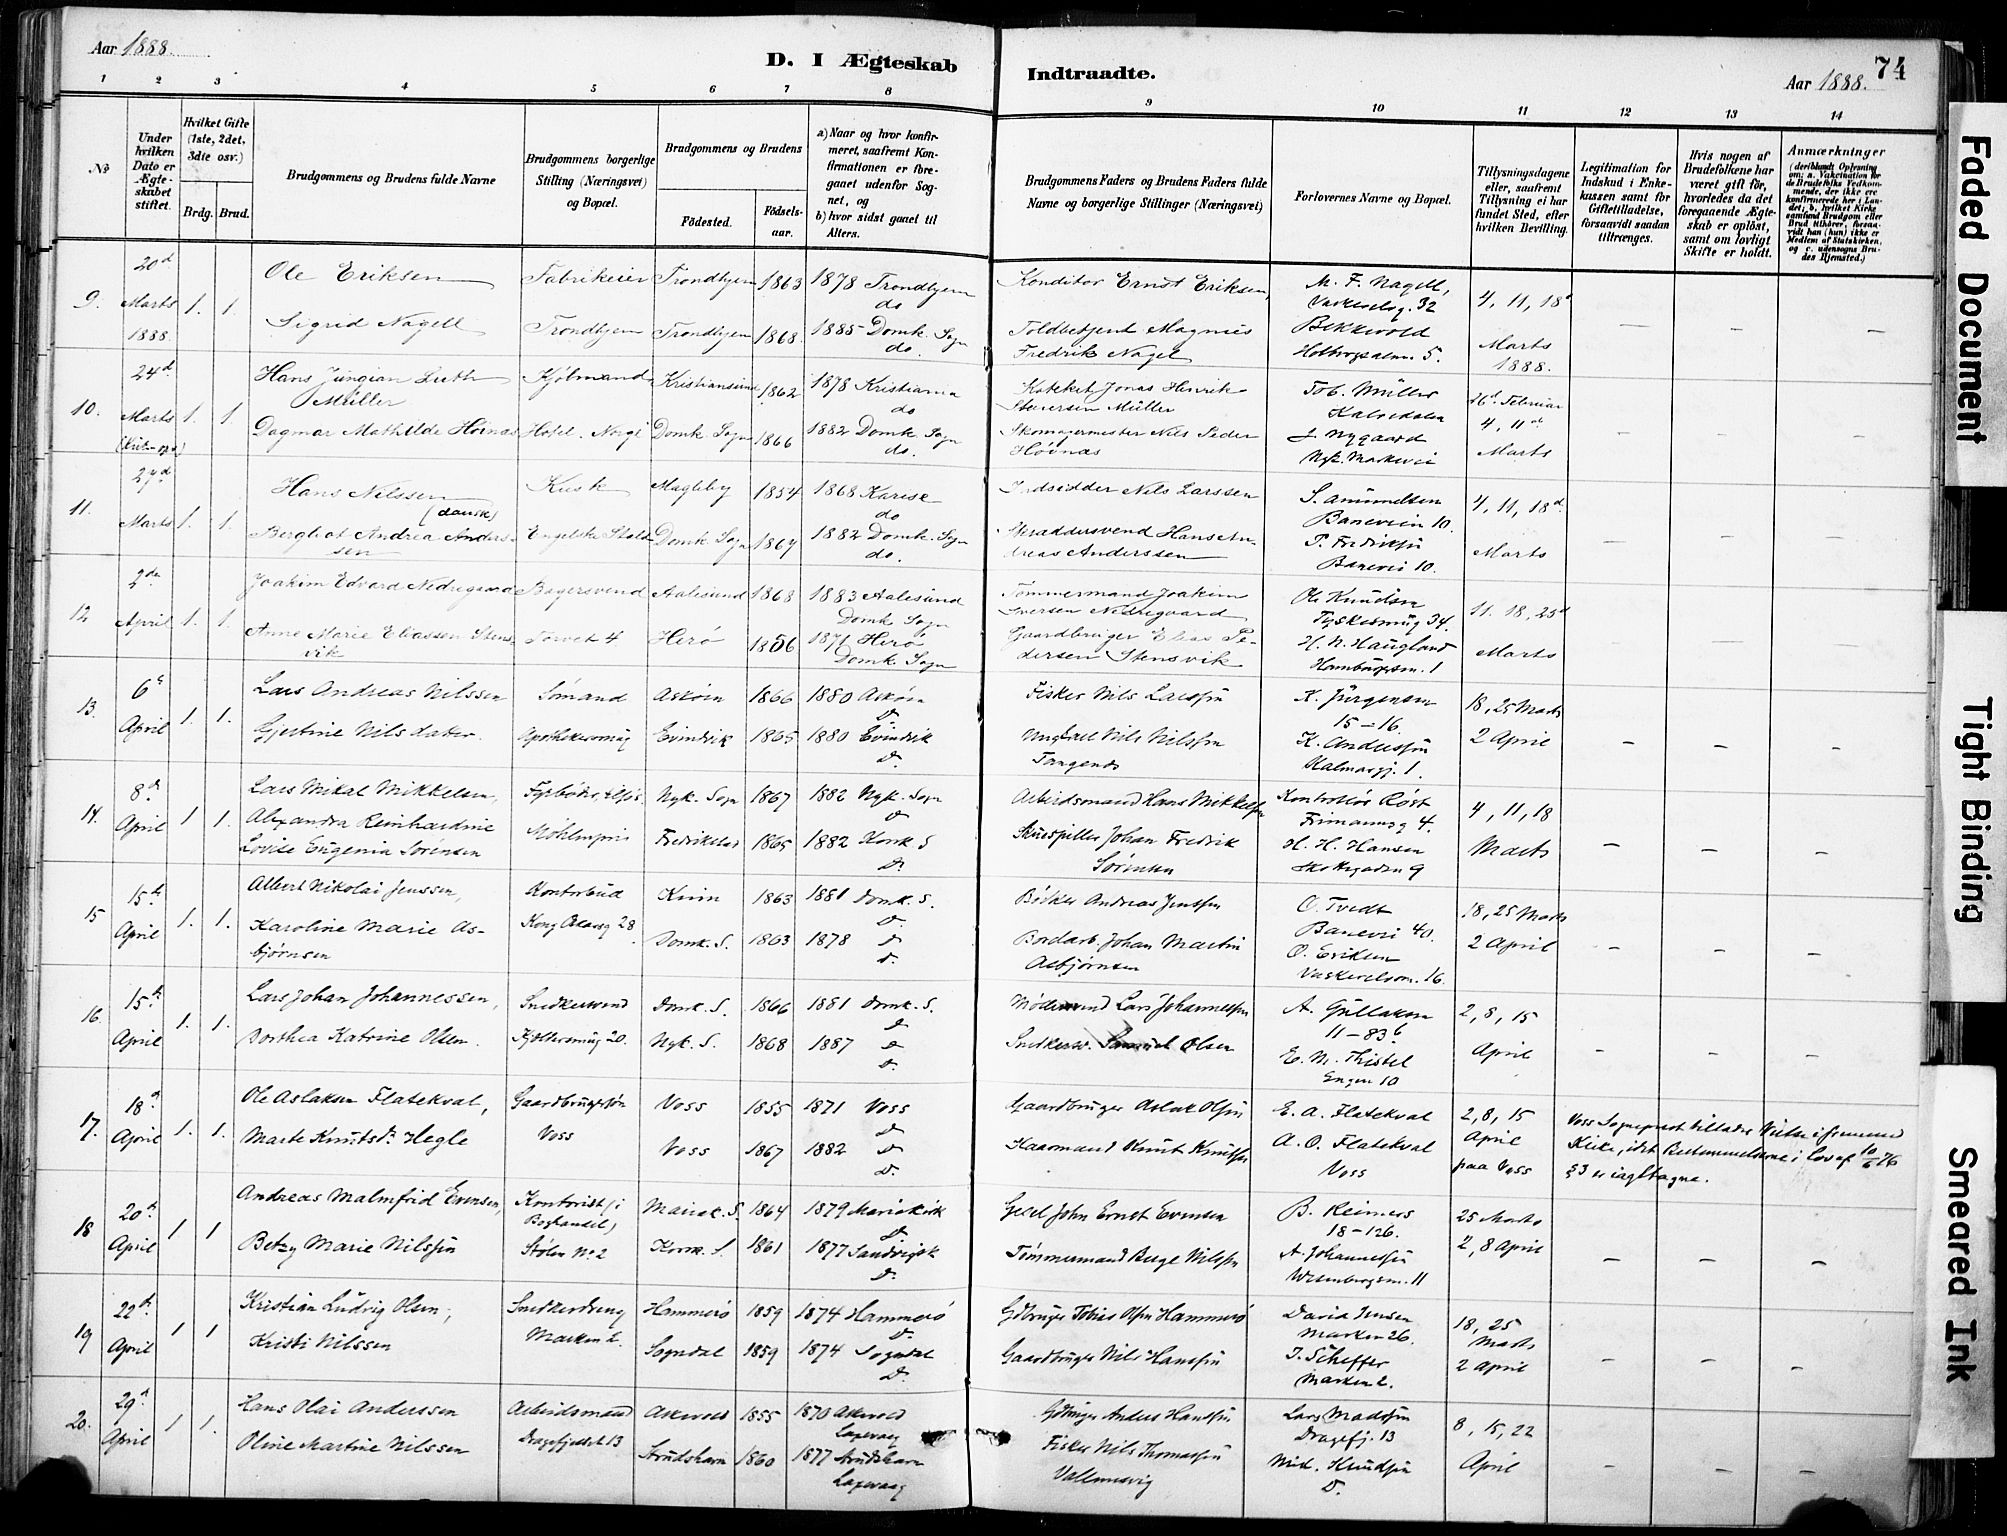 Aar 1888.
D. I Ægteskab
Indtraadte.
Aar 1888.
74
1 2 3 4 5 6 7 8 9 10 11 12 13 14
No
Under hvilken Dato er Ægteskabet stiftet.
Hvilket Gifte (1ste, 2det, 3die osv.)
Brdg. Brud.
Brudgommens og Brudens fulde Navne
Brudgommens borgerlige Stilling (Næringsvei) og Bopæl.
Brudgommens og Brudens
Fødested.
Fødsels-aar.
a) Naar og hvor konfirmeret, saafremt Konfirmationen er foregaaet udenfor Sognet, og
b) hvor sidst gaaet til Alters.
Brudgommens Faders og Brudens Faders fulde Navne og borgerlige Stillinger (Næringsvei)
Forlovernes Navne og Bopæl.
Tillysningsdagene eller, saafremt Tillysning ei har fundet Sted, efter hvilken Bevilling.
Legitimation for Indskud i Enkekassen samt for Giftetilladelse, forsaavidt saadan tiltrænges.
Hvis nogen af Brudefolkene har været gift før, hvorledes da det foregaaende Ægteskab er opløst, samt om lovligt Skifte er holdt.
Anmærkninger
(deriblandt Oplysning om: a. Vakcination for de Brudefolks Vedkommende, der ikke ere konfirmerede her i Landet; b. hvilket Kirkesamfund Brudgom eller Brud tilhører, forsaavidt han (hun) ikke er Medlem af Statskirken, og c. udensogns Brudes Hjemsted.)
9. 20d Marts 1888. 1. 1.
Ole Eriksen Fabrikeier Trondhjem 1863 1878 Trondhjem do
Sigrid Nagell Trondhjem Trondhjem 1868. 1885 Domk. Sogn do.
Konditor Ernst Eriksen,
Toldbetjent Magnus Fredrik Nagel
M. F. Nagell, 32
Bekkevold
Holbergsalm. 5.
4, 11, 18d Marts 1888.
10. 24d Marts 1. 1
Hans Jürgian Luth Müller Kjøbmand Kristiansund 1862 1878 Kristiania do
Dagmar Mathilde Høvnas Domk. Sogn 1866 1882 Domk. Sogn do.
Kateket Jonas Henrik Müller
Skomagermester Nils Peder Høvnas
Tob. Müller Kalvedalen
J. Nygaard
Nyk. Markevei
26d Februar 4, 11d Marts
11. 27d Marts 1. 1.
Hans Nilssen (dansk) Kusk Magleby 1854 1868 Karise do
Bergliot Andrea Anderssen Domk Sogn 1864 1882 Domk. Sogn do.
Indsidder Nils Larssen
Skræddersvend Hans Andreas Anderssen
S. Amundsen
Baneveien 10.
P. Fredriksen
Banevei 10.
4, 11, 18d. Marts
12 2den April 1. 1.
Joakim Edvard Nedregaard Bagersvend Aalesund 1868 1883 Aalesund Domk. Sogn
Anne Marie Eliassen Stensvik Torvet 4 Herø 1856 1871 Herø Domk. Sogn
Tømmermand Joakim Iversen Nedregaard
Gaardbruger Elias Pedersen Stensvik
Ole Knudsen
Tyskesmug 34.
H. N. Haugland
Hamburgsm. 1
11. 18, 25d Marts
13. 6te April 1. 1.
Lars Andreas Nilssen Sømand Askøen 1866 1880 Askøen D.
Gjertine Nilsdatter. Apothekersmug Evindvik 1865 1880 Evindvik D.
Fisker Nils Larssen
Ungkarl Nils Nilssen Tangends
K. Jürgensen
15–16.
K. Anderssen
Kalmargj. 1.
18, 25 Marts 2 April
14. 8d. April 1 1.
Lars Mikal Mikkelsen, Nyk. Sogn 1867 1882 Nyk. Sogn D
Alexandra Reinhardine Lovise Eugenia Sørensen Møhlenpris Fredrikstad 1865 1882 Korsk S D.
Arbeidsmand Hans Mikkelsen
Skuespiller Johan Fredrik Sørensen
Kontrollør Røst
4.
H. H. Hansen
9
4, 11, 18 Marts
15 15de April 1. 1.
Albert Nikolai Jenssen, Kontorbud Kinn 1863 1881 Domk. S. D.
Karoline Marie Asbjørnsen Kong Oscarsg 28 Domk. S. 1863 1878 D D.
Bødker Andreas Jenssen
Bordarb. Johan Martin Asbjørnsen
O. Tvedt
Banevei 40.
O. Eriksen
16.
18, 25 Marts 2 April
16. 15de April 1. 1.
Lars Johan Johannessen, Snedkersvend Domk. S. 1866 1881 Domk. S. D
Dorthea Katrine Olsen. 20. Nyk. S. 1868 1887 D D.
Lars Johannessen
Snedkersv. Samuel Olsen
A. Gullaksen
11–83b
E. M. Thistel
Engen 10
2, 8, 15 April
17. 18d April 1. 1.
Ole Aslaksen Flatekval, Gaardbrugersøn Voss 1855 1871 Voss D
Marte Knutsd. Hegle Voss Voss 1867 1882 D D.
Gaardbruger Aslak Olsen
Kaarmand Knut Knutsen
E. A. Flatekval
A. O. Flatekval
Voss
2, 8, 15 April paa Voss
Voss Sogneprest tillader Vielse i fremmed Kirke, idet Bestemmelserne i Lov af 10/6 76 §3 er iagttagne.
18 20de April 1 1
Andreas Malmfrid Evensen, Kontorist (i Boghandel) Mariak. S. 1864 1879 Mariakirk D
Betzy Marie Nilssen Stølen No 2 Korsk. S. 1861 1877 Sandvigsk D.
John Ernst Evensen
Tømmermand Berge Nilssen
B. Reimers
18–126.
A. Johannessen
Wesenbergsm. 11
25 Marts 2, 8 April
19 22de April 1 1
Kristian Ludvig Olsen, Snedkerdreng Hammerø 1859 1874 Hammerø D.
Kristi Nilssen Marken 2. Sogndal 1859 1874 Sogndal D.
Gdbruger Tobias Olsen Hammerø
Gaardbruger Nils Hanssen
David Jensen
Marken 26.
J. Scheffer
Marken 2.
18, 25 Marts 2 April
20. 29de April 1 1.
Hans Olai Anderssen Arbeidsmand Askvold 1855 1870 Askvold Laxevaag
Oline Martine Nilssen Dragefjellet 13 Strudshavn 1860 1877 Strudshavn Laxevaag
Gdbruger Anders Hanssen
Fisker Nils Thomassen
Lars Madssen
Dragefj. 13
Knudsen
D.
8, 15, 22 April
Faded Document
Tight Binding
Smeared Ink